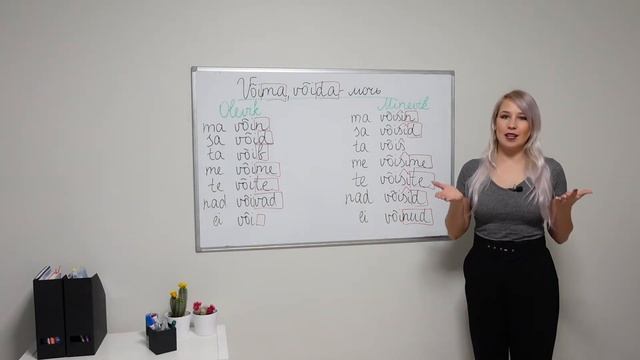 Võima, võida - мочь
Olevik
ma võin
sa võid
ta võib
me võime
te võite
nad võivad
ei või
Minevik
ma võisin
sa võisid
ta võis
me võisime
te võisite
nad võisid
ei võinud